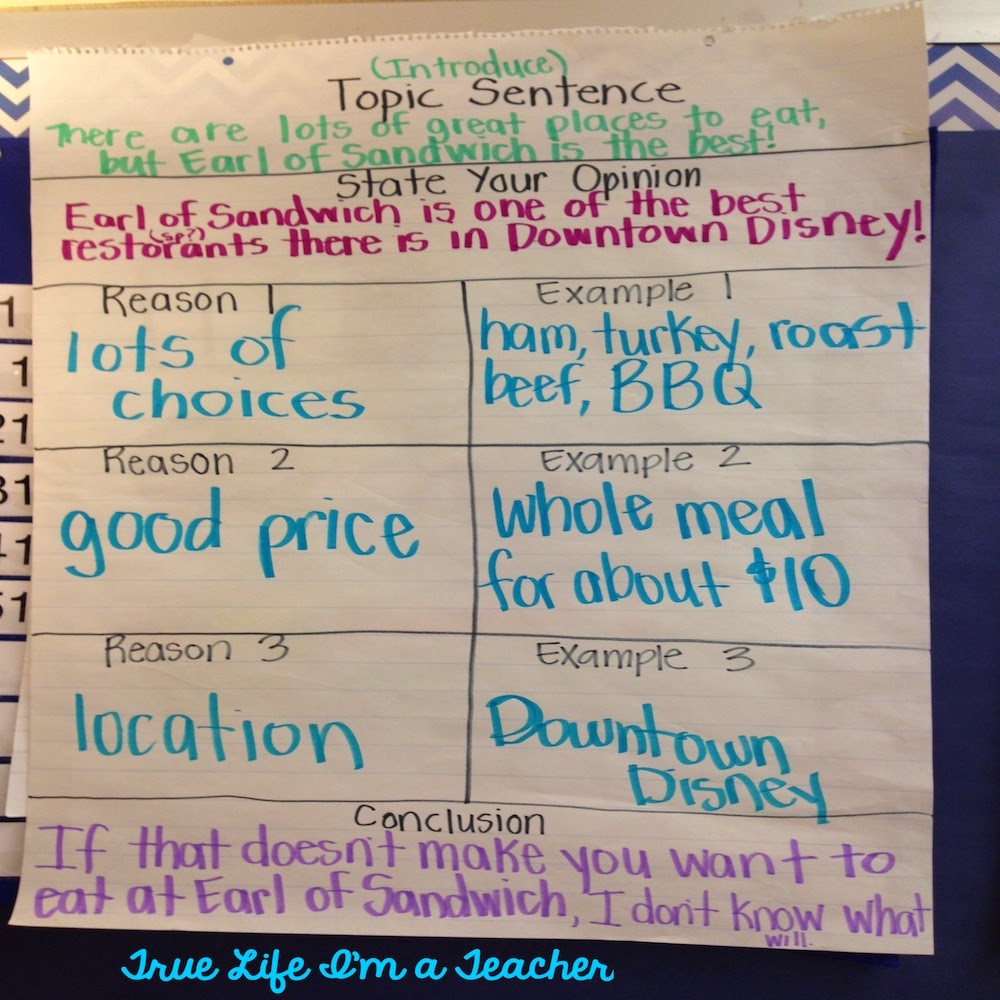 (Introduce)
Topic Sentence
There are lots of great places to eat,
but Earl of Sandwich is the best!
State Your Opinion
Earl of Sandwich is one of the best
(sp?)
restorants there is in Downtown Disney!
Reason 1
lots of
choices
Example 1
ham, turkey, roast
beef, BBQ
Reason 2
good price
Example 2
whole meal
for about $10
Reason 3
location
Example 3
Downtown
Disney
Conclusion
If that doesn't make you want to
eat at Earl of Sandwich, I don't know what
will.
1
1
21
31
41
51
True Life I'm a Teacher